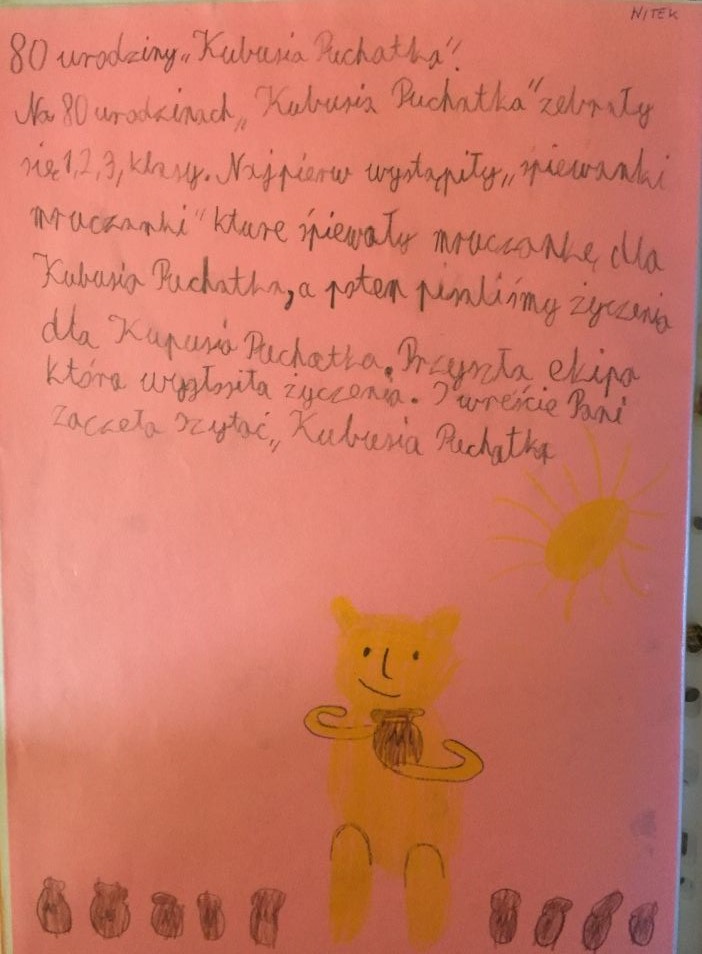 WITEK
80 urodziny „Kubusia Puchatka".
Na 80 urodzinach „Kubusia Puchatka" zebrały
się 1, 2, 3, klasy. Najpierw wystąpiły „śpiewanki
mruczanki" kture śpiewały mruczankę dla
Kubusia Puchatka, a potem pisaliśmy życzenia
dla Kupusia Puchatka. Przyszła ekipa
która wygłosiła życzenia. I wreście Pani
zaczeła czytać „Kubusia Puchatka